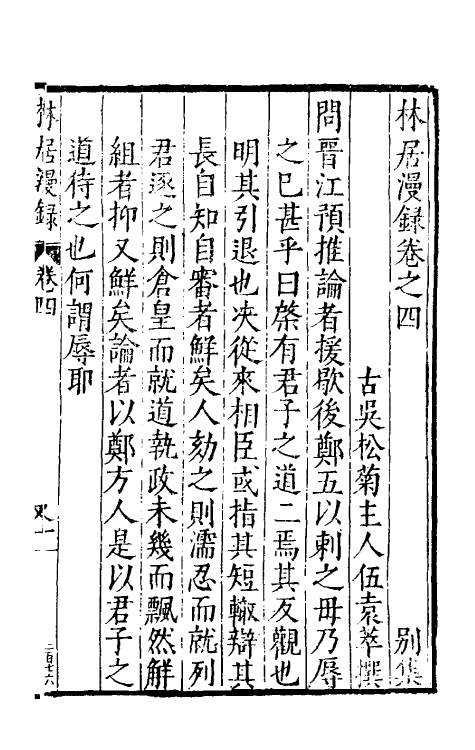 林居漫録卷之四 别集
古吳松菊主人伍袁萃撰
問晉江預推論者援歇後鄭五以刺之毋乃辱
之已甚乎曰棨有君子之道二焉其反觀也
明其引退也决從來相臣或指其短輙辯其
長自知自審者鮮矣人劾之則濡忍而就列
君逐之則倉皇而就道執政未幾而飄然解
組者抑又鮮矣論者以鄭方人是以君子之
道待之也何謂辱耶
林居漫録 卷四
二百七六